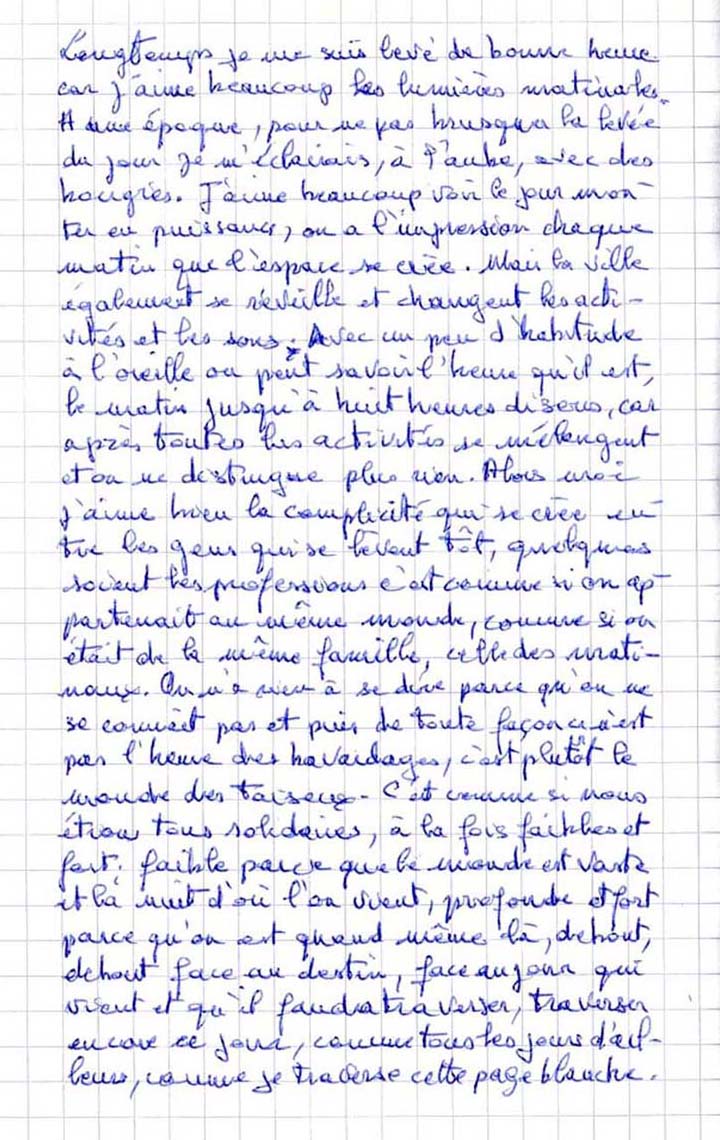 Longtemps je me suis levé de bonne heure
car j'aime beaucoup les lumières matinales.
A une époque, pour ne pas brusquer la levée
du jour je m'éclairais, à l'aube, avec des
bougies. J'aime beaucoup voir le jour mon-
ter en puissance, on a l'impression chaque
matin que l'espace se crée. Mais la ville
également se réveille et changent les acti-
vités et les sons. Avec un peu d'habitude
à l'oreille on peut savoir l'heure qu'il est,
le matin jusqu'à huit heures disons, car
après toutes les activités se mélangent
et on ne distingue plus rien. Alors moi
j'aime bien la complicité qui se crée en-
tre les gens qui se lèvent tôt, quelques
soient les professions c'est comme si on ap-
partenait au même monde, comme si on
était de la même famille, celle des mati-
naux. On n'a rien à se dire parce qu'on ne
se connaît pas et puis de toute façon ce n'est
pas l'heure des bavardages, c'est plutôt le
monde des taiseux. C'est comme si nous
étions tous solidaires, à la fois faibles et
fort. faible parce que le monde est vaste
et la nuit d'où l'on vient, profonde et fort
parce qu'on est quand même là, debout,
debout face au destin, face au jour qui
vient et qu'il faudra traverser, traverser
encore ce jour, comme tous les jours d'ail-
leurs, comme je traverse cette page blanche.